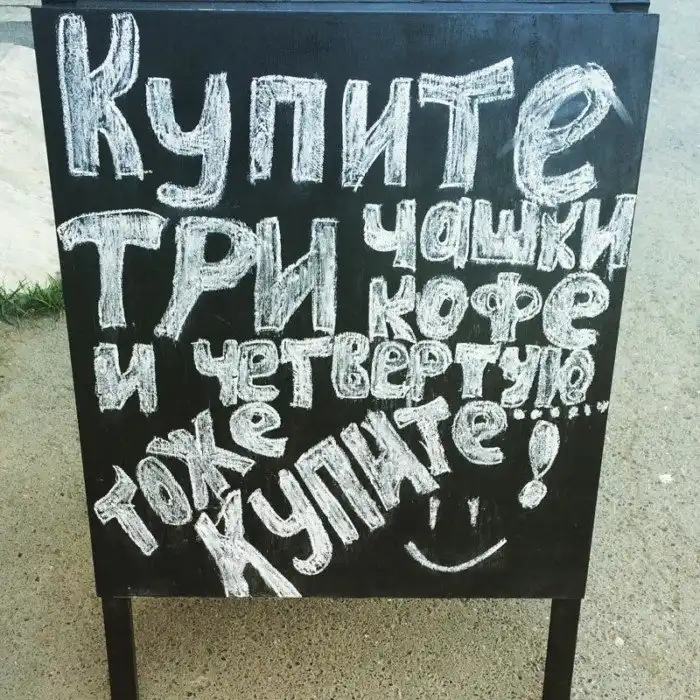 Купите
три чашки
кофе
и четвертую......
тоже
купите!